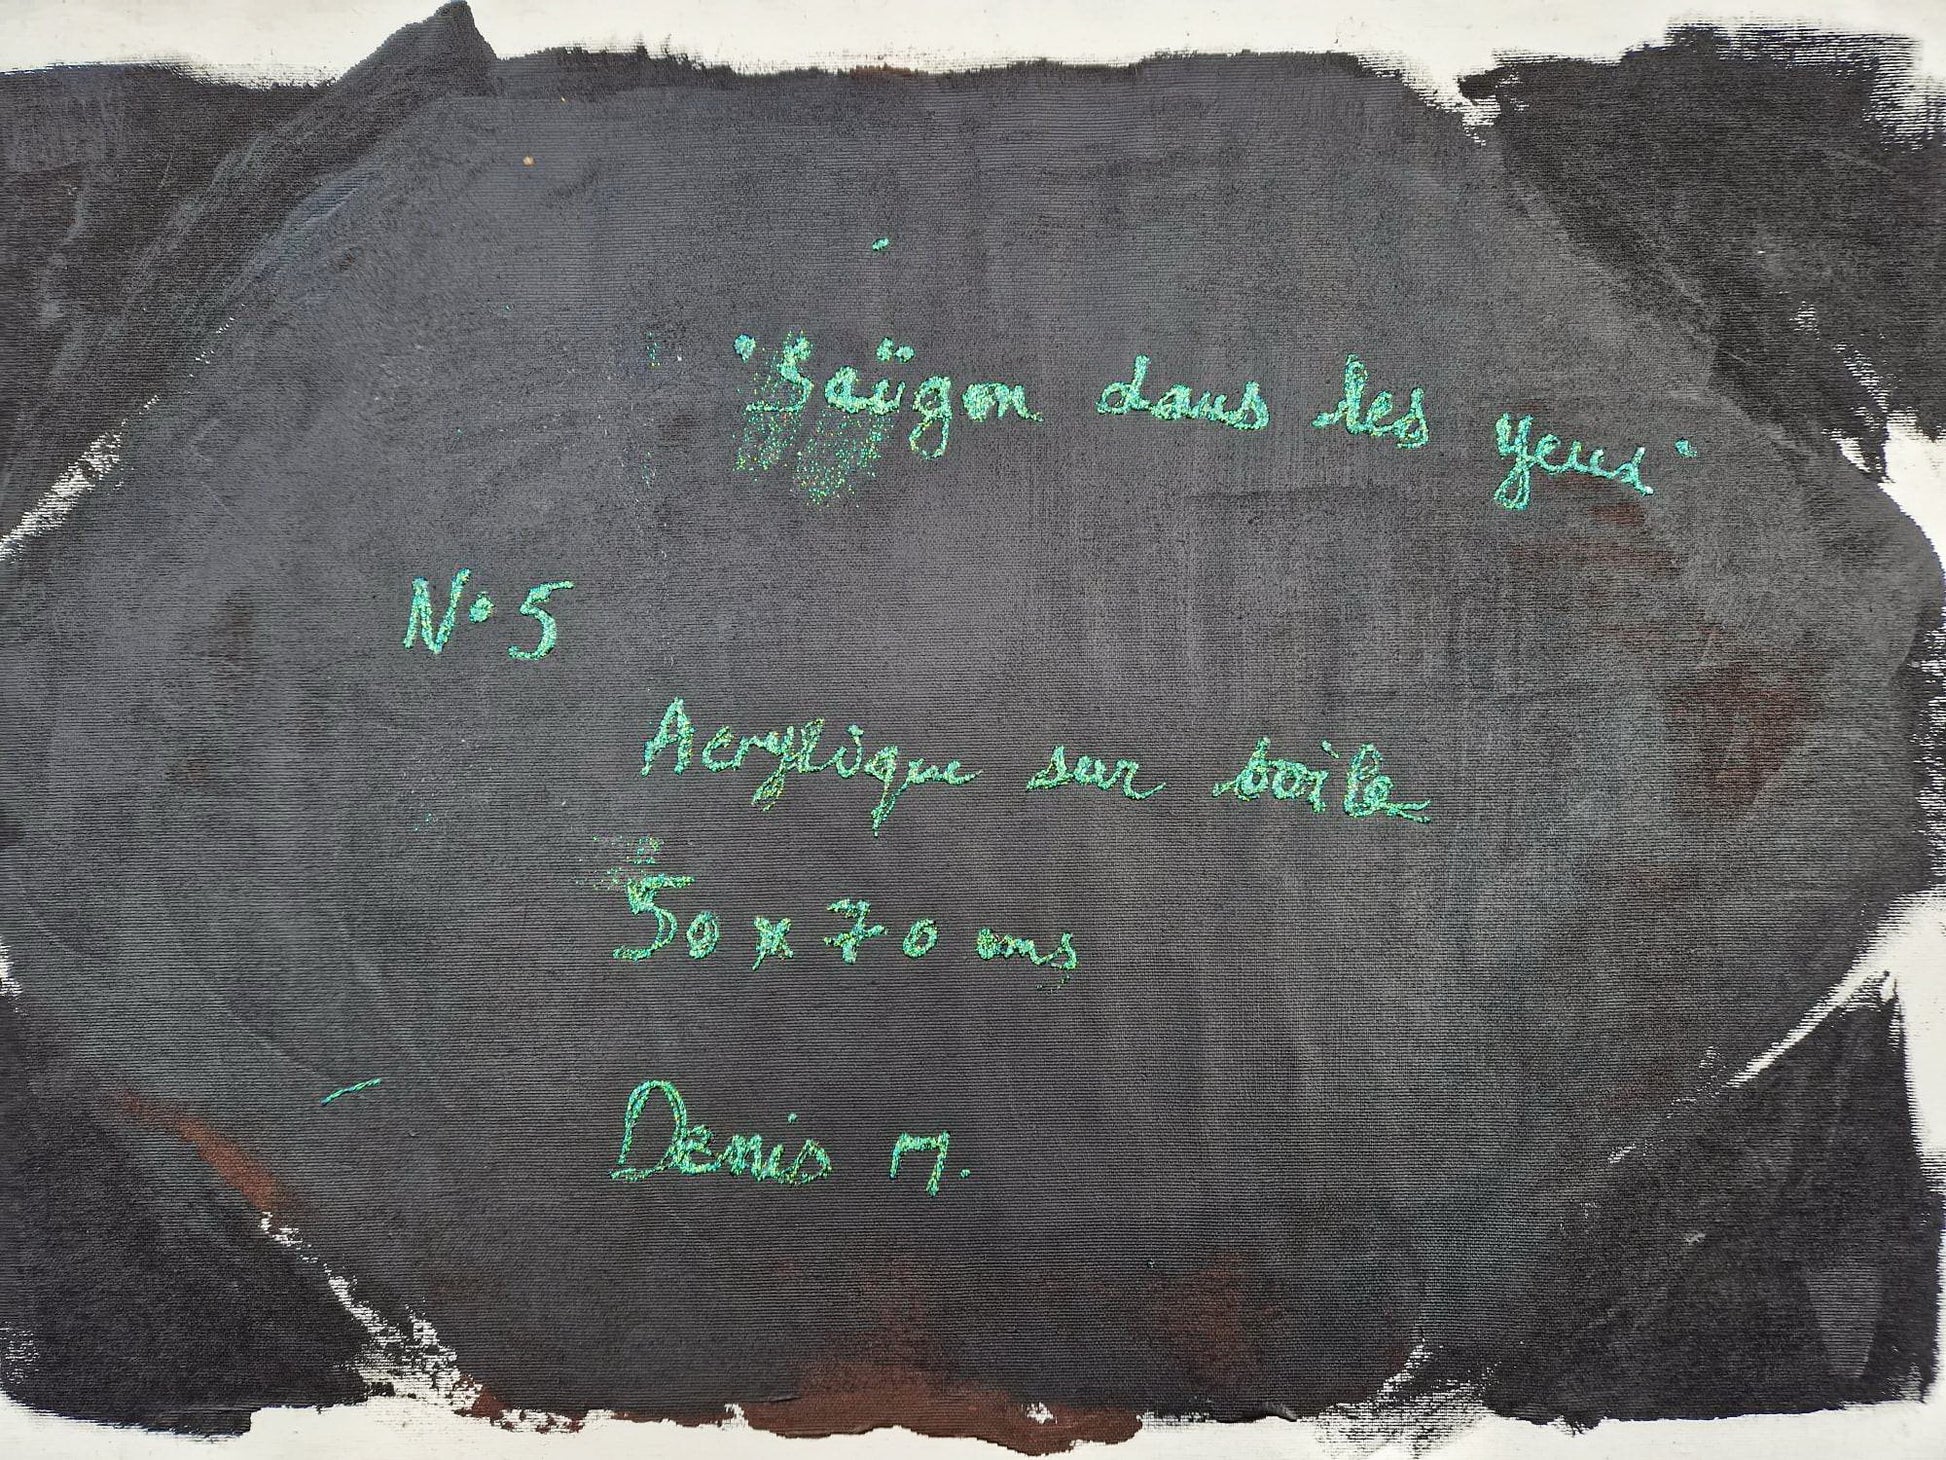 "Saïgon dans les yeux"
N° 5
Acrylique sur toile
50 x 70 cms
Denis M.